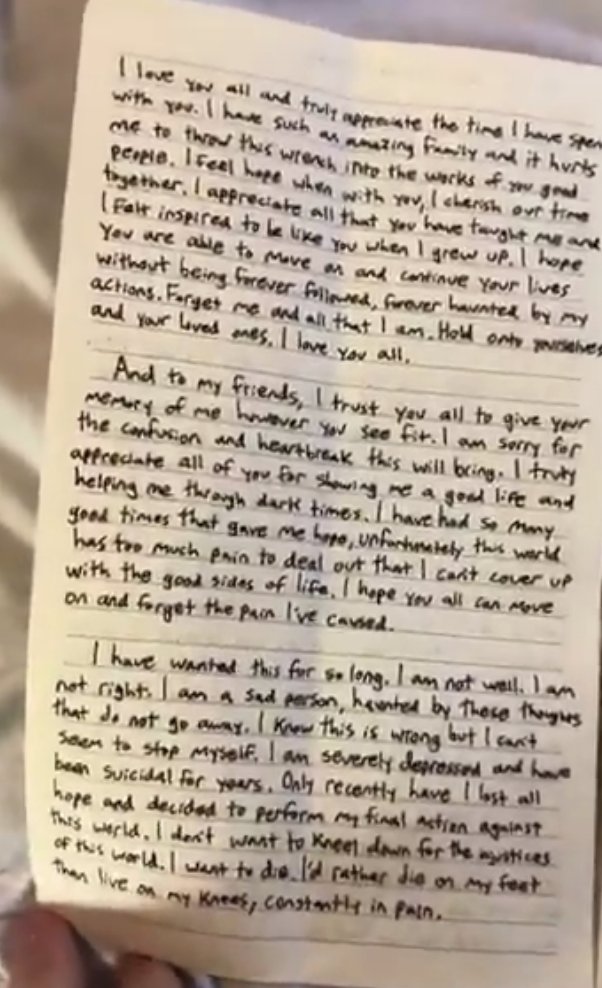 I love you all and truly appreciate the time I have spen
with you. I have such an amazing family and it hurts
me to throw this wrench into the works of you good
people. I feel hope when with you, I cherish our time
together. I appreciate all that you have taught me and
I felt inspired to be like you when I grew up. I hope
you are able to move on and continue your lives
without being forever followed, forever haunted by my
actions. Forget me and all that I am. Hold onto yourselves
and your loved ones. I love you all.
And to my friends, I trust you all to give your
memory of me however you see fit. I am sorry for
the confusion and heartbreak this will bring. I truly
appreciate all of you for showing me a good life and
helping me through dark times. I have had so many
good times that gave me hope, unfortunately this world
has too much pain to deal out that I can't cover up
with the good sides of life. I hope you all can move
on and forget the pain I've caused.
I have wanted this for so long. I am not well. I am
not right. I am a sad person, haunted by these thoughts
that do not go away. I know this is wrong but I can't
seem to stop myself. I am severely depressed and have
been suicidal for years. Only recently have I lost all
hope and decided to perform my final action against
this world. I don't want to kneel down for the injustices
of this world. I want to die. I'd rather die on my feet
than live on my knees, constantly in pain.